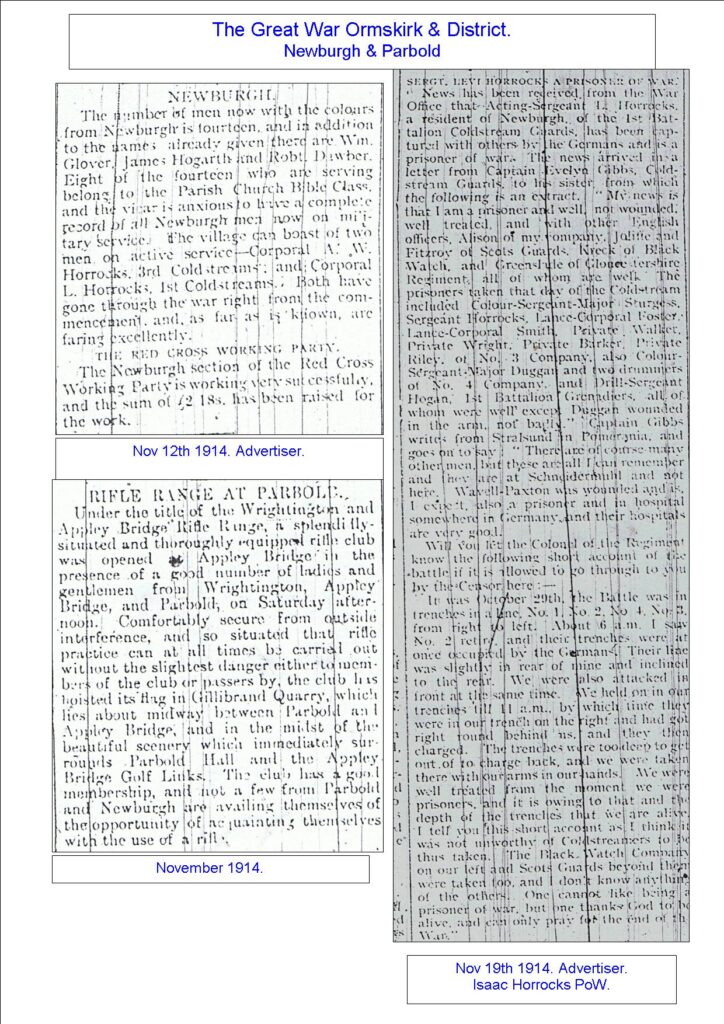 The Great War Ormskirk & District.
Newburgh & Parbold
NEWBURGH.
The number of men now with the colours
from Newburgh is fourteen, and in addition
to the names already given there are Wm.
Glover, James Hogarth and Robt. Dawber.
Eight of the fourteen who are serving
belong to the Parish Church Bible Class,
and the vicar is anxious to have a complete
record of all Newburgh men now on mili-
tary service. The village can boast of two
men on active service—Corporal A. W.
Horrocks, 3rd Coldstreams; and Corporal
L. Horrocks, 1st Coldstreams. Both have
gone through the war right from the com-
mencement, and, as far as is known, are
faring excellently.
THE RED CROSS WORKING PARTY.
The Newburgh section of the Red Cross
Working Party is working very successfully,
and the sum of £2 18s. has been raised for
the work.
Nov 12th 1914. Advertiser.
RIFLE RANGE AT PARBOLD.
Under the title of the Wrightington and
Appley Bridge Rifle Range, a splendidly-
situated and thoroughly equipped rifle club
was opened at Appley Bridge in the
presence of a good number of ladies and
gentlemen from Wrightington, Appley
Bridge, and Parbold, on Saturday after-
noon. Comfortably secure from outside
interference, and so situated that rifle
practice can at all times be carried out
without the slightest danger either to mem-
bers of the club or passers by, the club has
hoisted its flag in Gillibrand Quarry, which
lies about midway between Parbold and
Appley Bridge, and in the midst of the
beautiful scenery which immediately sur-
rounds Parbold Hall and the Appley
Bridge Golf Links. The club has a good
membership, and not a few from Parbold
and Newburgh are availing themselves of
the opportunity of acquainting themselves
with the use of a rifle.
November 1914.
SERGT. LEVI HORROCKS A PRISONER OF WAR.
News has been received from the War
Office that Acting-Sergeant L. Horrocks,
a resident of Newburgh, of the 1st Bat-
talion Coldstream Guards, has been cap-
tured with others by the Germans and is a
prisoner of war. The news arrived in a
letter from Captain Evelyn Gibbs, Cold-
stream Guards, to his sister, from which
the following is an extract. "My news is
that I am a prisoner and well, not wounded,
well treated, and with other English
officers, Alison of my company, Joliffe and
Fitzroy of Scots Guards, of Black
Watch, and Greenslade of Gloucestershire
Regiment, all of whom are well. The
prisoners taken that day of the Coldstream
included Colour-Sergeant-Major Sturgess,
Sergeant Horrocks, Lance-Corporal Foster,
Lance-Corporal Smith, Private Walker,
Private Wright, Private Barker, Private
Riley, of No. 3 Company, also Colour-
Sergeant-Major Duggan and two drummers
of No. 4 Company, and Drill-Sergeant
Hogan, 1st Battalion Grenadiers, all of
whom were well except Duggan wounded
in the arm, not badly." Captain Gibbs
writes from Stralsund in Pomerania, and
goes on to say: "There are of course many
other men, but these are all I can remember
and they are at Schneidermuhl and not
here. Wavell-Paxton was wounded and is,
I expect, also a prisoner and in hospital
somewhere in Germany, and their hospitals
are very good.
Will you let the Colonel of the Regiment
know the following short account of the
battle if it is allowed to go through to you
by the Censor here:—
It was October 29th, the Battle was in
trenches in a line, No. 1, No. 2, No. 4, No. 3,
from right to left. About 6 a.m. I saw
No. 2 retire and their trenches were at
once occupied by the Germans. Their line
was slightly in rear of mine and inclined
to the rear. We were also attacked in
front at the same time. We held on in our
trenches till 11 a.m., by which time they
were in our trench on the right and had got
right round behind us, and they then
charged. The trenches were too deep to get
out of to charge back, and we were taken
there with our arms in our hands. We were
well treated from the moment we were
prisoners, and it is owing to that and the
depth of the trenches that we are alive.
I tell you this short account as I think it
was not unworthy of Coldstreamers to be
thus taken. The Black Watch Company
on our left and Scots Guards beyond them
were taken too, and I don't know anything
of the others. One cannot like being a
prisoner of war, but one thanks God to be
alive, and can only pray for the end of the
War."
Nov 19th 1914. Advertiser.
Isaac Horrocks PoW.